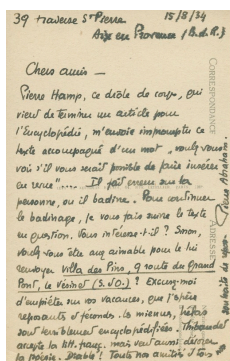 39 traverse St Pierre 15/8/34
Aix en Provence (B.d.R.)
Chers amis —
Pierre Hamp, ce drôle de corps, qui
vient de terminer un article pour
l'Encyclopédie, m'envoie impromptu ce
texte accompagné d'un mot "voulez-vous
voir s'il vous serait possible de faire insérer
en revue".... Il fait erreur sur la
personne, ou il badine. Pour continuer
le badinage, je vous fais suivre le texte
en question. Vous intéresse-t-il ? Sinon,
voulez-vous être aimable pour le lui
renvoyer Villa des Pins, 9 route du Grand
Pont, le Vésinet (S.&O.) ? Excusez-moi
d'empiéter sur vos vacances, que j'espère
reposantes et fécondes. les miennes, hélas
sont terriblement encyclopédifiées. Thibaudet
accepte la litt. franç. mais veut aussi
la poésie. Diable ! Toutes nos amitiés
CORRESPONDANCE
ADRESSE
Pierre Abraham